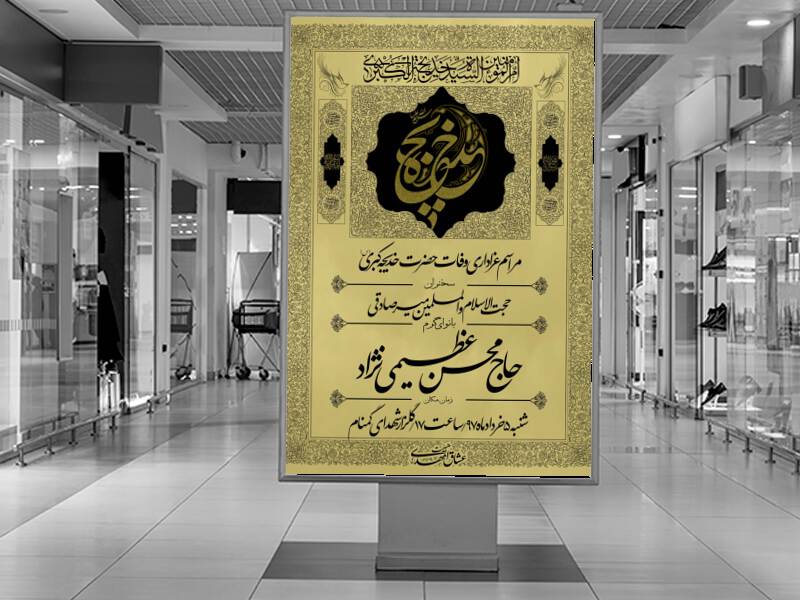 ام المومنین السیدة خدیجة الکبری
خدیجه
مراسم عزاداری وفات حضرت خدیجه کبری
سخنران
حجت الاسلام والمسلمین میرصادقی
بانوای گرم
حاج محسن عظیمی نژاد
زمان مکان
شنبه ۵ خرداد ماه ۹۷ ساعت ۱۷ گلزار شهدای گمنام
عشاق المهدی